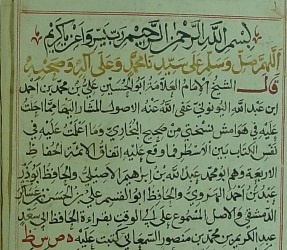 بسم الله الرحمن الرحيم رب يسر واعن يا كريم
اللهم صل وسلم على سيدنا محمد وعلى آله وصحبه
قال الشيخ الامام العلامة ابو الحسين علي بن محمد بن احمد
ابن عبد الله اليونيني عفى الله عنه الاصول المشار اليها مما جعلت
عليه في هوامش نسختي من صحيح البخاري وما علمت عليه في
نفس الكتاب بين الاسطر فما وقع عليه اتفاق الائمة الحفاظ
الاربعة وهم ابو محمد عبد الله بن ابراهيم الاصيلي والحافظ ابو ذر
عبد بن احمد الهروي والحافظ ابو القسم علي بن الحسن بن عساكر
الدمشقي والاصل المسموع على ابي الوقت بقراءة الحافظ ابي سعد
عبد الكريم بن محمد بن منصور السمعاني كتبت عليه ه ص س ظ